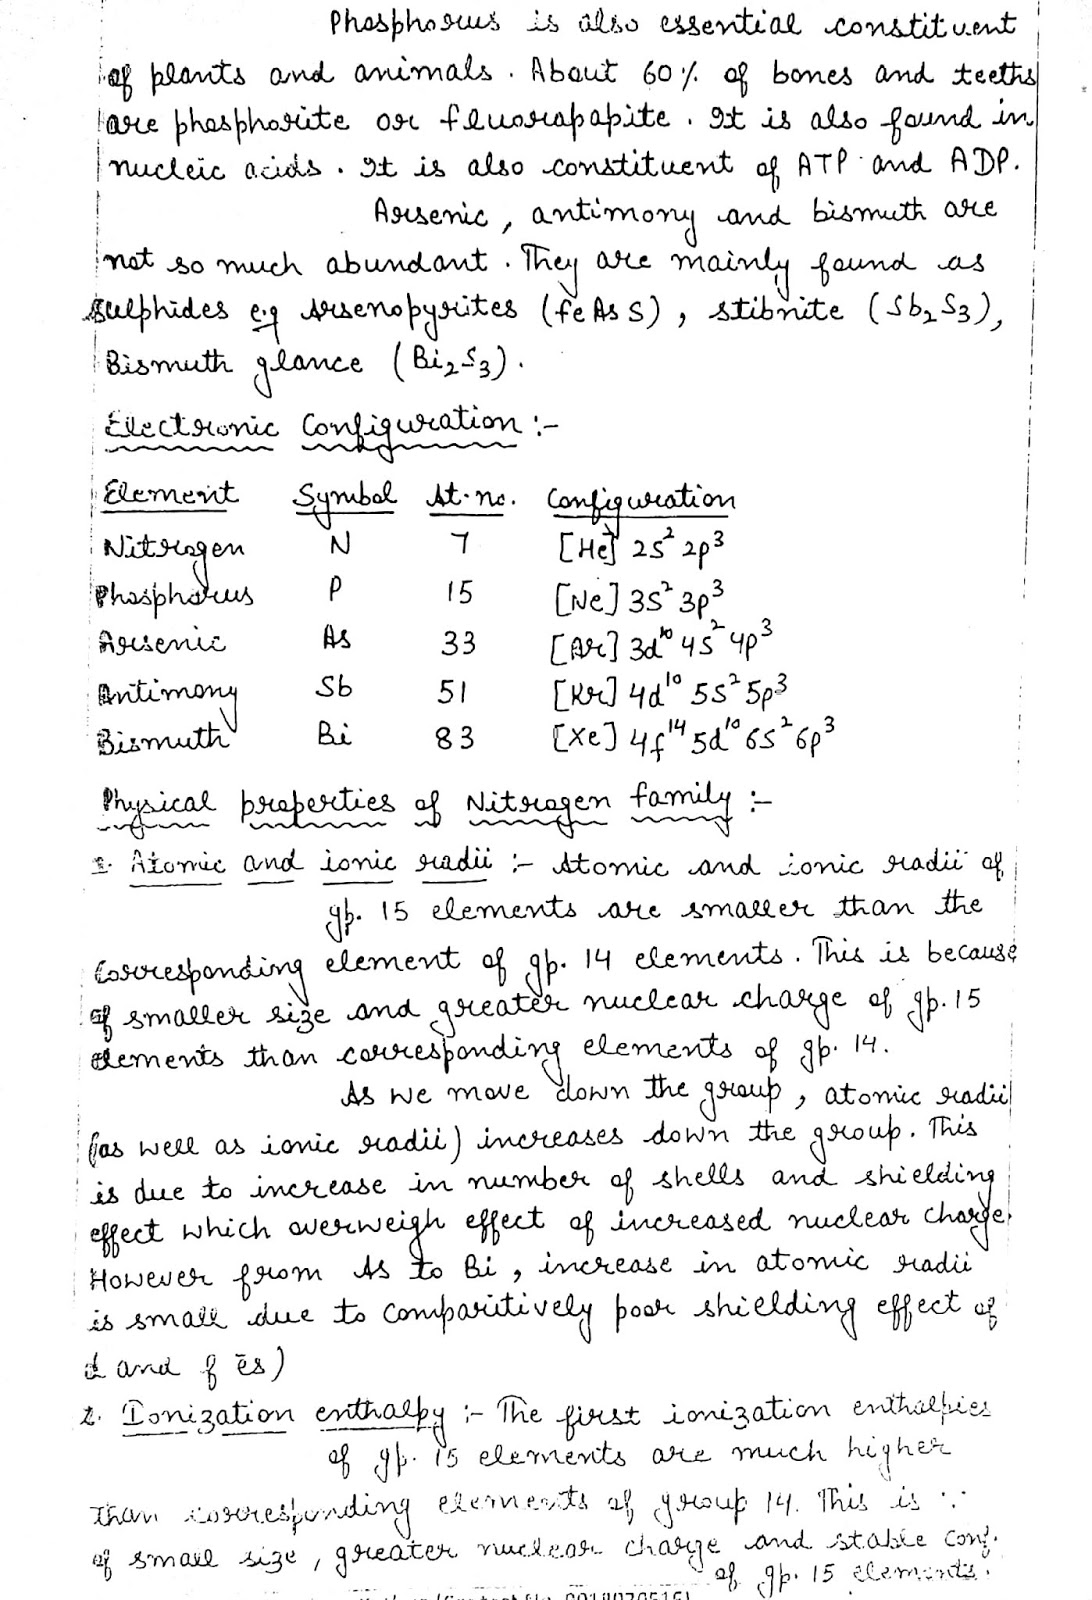 Phosphorus is also essential constituent
of plants and animals. About 60% of bones and teeths
are phosphorite or fluorapapite. It is also found in
nucleic acids. It is also constituent of ATP and ADP.
Arsenic, antimony and bismuth are
not so much abundant. They are mainly found as
sulphides e.g Arsenopyrites (FeAsS), stibnite (Sb₂S₃),
Bismuth glance (Bi₂S₃).
Electronic Configuration :-
Element Symbol At. no. Configuration
Nitrogen N 7 [He] 2s² 2p³
Phosphorus P 15 [Ne] 3s² 3p³
Arsenic As 33 [Ar] 3d¹⁰ 4s² 4p³
Antimony Sb 51 [Kr] 4d¹⁰ 5s² 5p³
Bismuth Bi 83 [Xe] 4f¹⁴ 5d¹⁰ 6s² 6p³
Physical properties of Nitrogen family :-
1. Atomic and ionic radii :- Atomic and ionic radii of
gp. 15 elements are smaller than the
corresponding element of gp. 14 elements. This is because
of smaller size and greater nuclear charge of gp. 15
elements than corresponding elements of gp. 14.
As we move down the group, atomic radii
(as well as ionic radii) increases down the group. This
is due to increase in number of shells and shielding
effect which overweigh effect of increased nuclear charge.
However from As to Bi, increase in atomic radii
is small due to comparitively poor shielding effect of
d and f ēs)
2. Ionization enthalpy :- The first ionization enthalpies
of gp. 15 elements are much higher
than corresponding elements of group 14. This is ∵
of small size, greater nuclear charge and stable conf.
of gp. 15 elements.